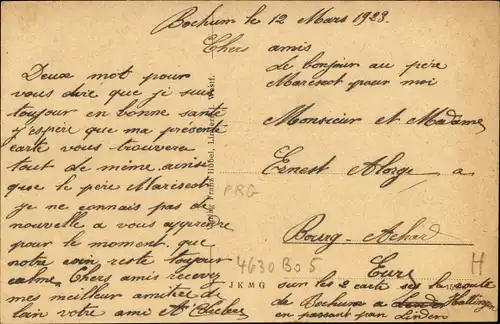 Bochum le 12 Mars 1923.
Chers amis
le bonjour au père
Mariscot pour moi
Deux mot pour
vous dire que je suis
toujour en bonne santé
j'espère que ma présente
carte vous trouvera
tout de même ainsi
que le père Mariscot
je ne connais pas de
nouvelle a vous apprendre
pour le moment, que
notre coin reste toujour
calme. Chers amis recevez
mes meilleur amitier de
loin votre ami
Monsieur et Madame
Ernest Alorge a
Bourg-Achard
Eure
sur les 2 carte ses la route
de Bochum a Hatting
en passant par Linden
Verlag Franz Höbel, Linden, Westf.
PRG
4630 Bo 5
JKMG
H